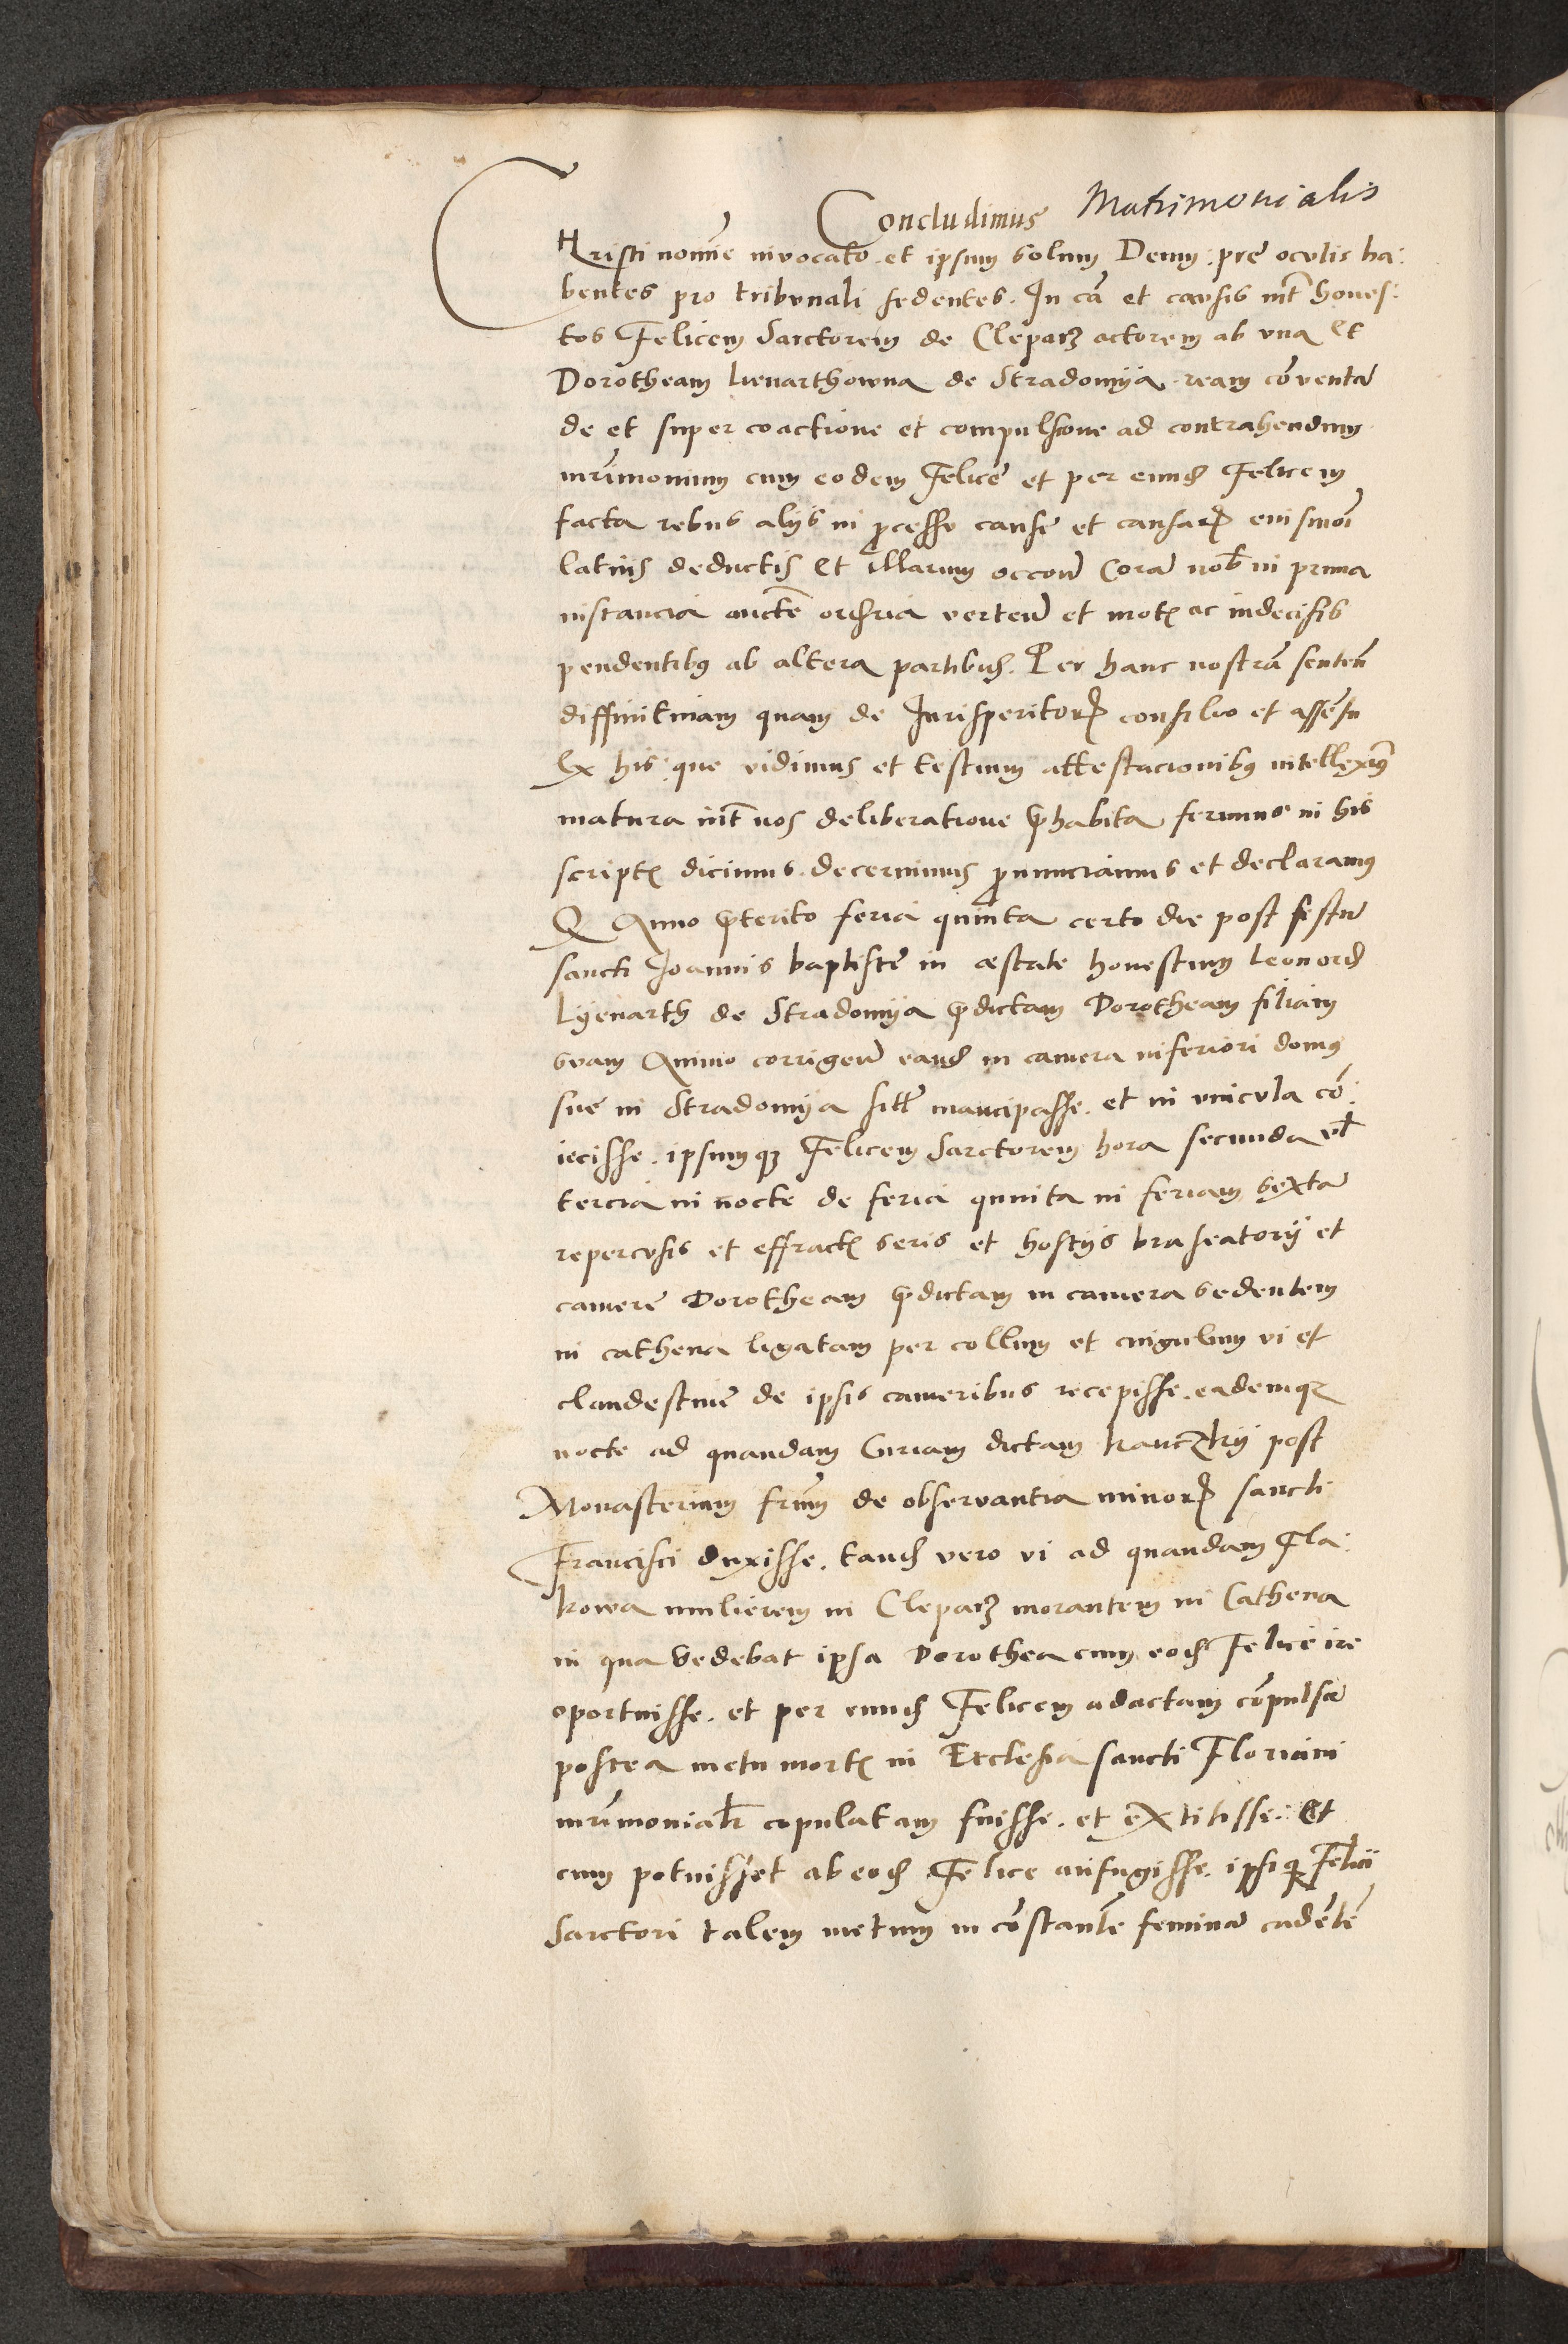 Concludimus Matrimonialis
CHristi nomine invocato et ipsum solum Deum pre oculis ha:
bentes pro tribunali sedentes. In cā et causis int̄ hones:
tos Felicem Sarctorem de Cleparz actorem ab una Et
Dorotheam Lienarthowna de Stradomÿa ream cōventā
de et super coactione et compulsione ad contrahendum
mr̄imonium cum eodem Felice et per eund Felicem
facta rebus alÿs in ꝓcessu cause et causarꝝ euismōi
latius deductis Et illarum occōne Corā nob̄ in prima
instancia auctē ordria verteñ et motꝭ ac indecisis
pendentibꝯ ab altera partibus. Per hanc nostrā senteñ
diffinitivam quam de Jurisperitorꝝ consilio et assēsu
Ex his que vidimus et testium attestacionibꝯ intelleximꝯ
matura int̄ nos deliberatione p̄habita ferimus in his
scriptꝭ dicimus decernimus ꝓnunctiamus et declaramꝯ
Q Anno p̄terito feria quinta certo die post festū
sancti Joannis baptiste in æstate honestum Leonard
Lÿenarth de Stradomÿa p̄dictam Dorotheam filiam
suam Animo corrigeñ eand in camera inferiori domꝯ
sue in Stradomÿa mancipasse. et in vincula cō:
iecisse. ipsumqꝫ Felicem Sarctorem hora secunda vl̄
tercia in nocte de feria quinta in feriam sextā
repercusis et effractꝭ seris et hostÿs braseatorÿ et
camere Dorotheam p̄dictam in camera sedentem
in cathena ligatam per collum et cingulum vi et
clandestine de ipsis cameribus recepisse. eademqꝫ
nocte ad quandam dictam post
Monasterium frm̄ de observantia minorꝝ sancti
Francisci duxisse. tand vero vi ad quandam Fla:
kowa mulierem in Cleparz morantem in Cathena
in qua sedebat ipsa Dorothea cum eod Felice ire
oportuisse. et per eund Felicem adactam cōpulsā
postea metu mortꝭ in Ecclesia sancti Floriani
mr̄imonialr̄ copulatam fuisse. et extitisse. Et
cum potuisset ab eod Felice aufugisse. ipsiqꝫ Felici
Sarctori talem metum in cōstantē feminā cadētē